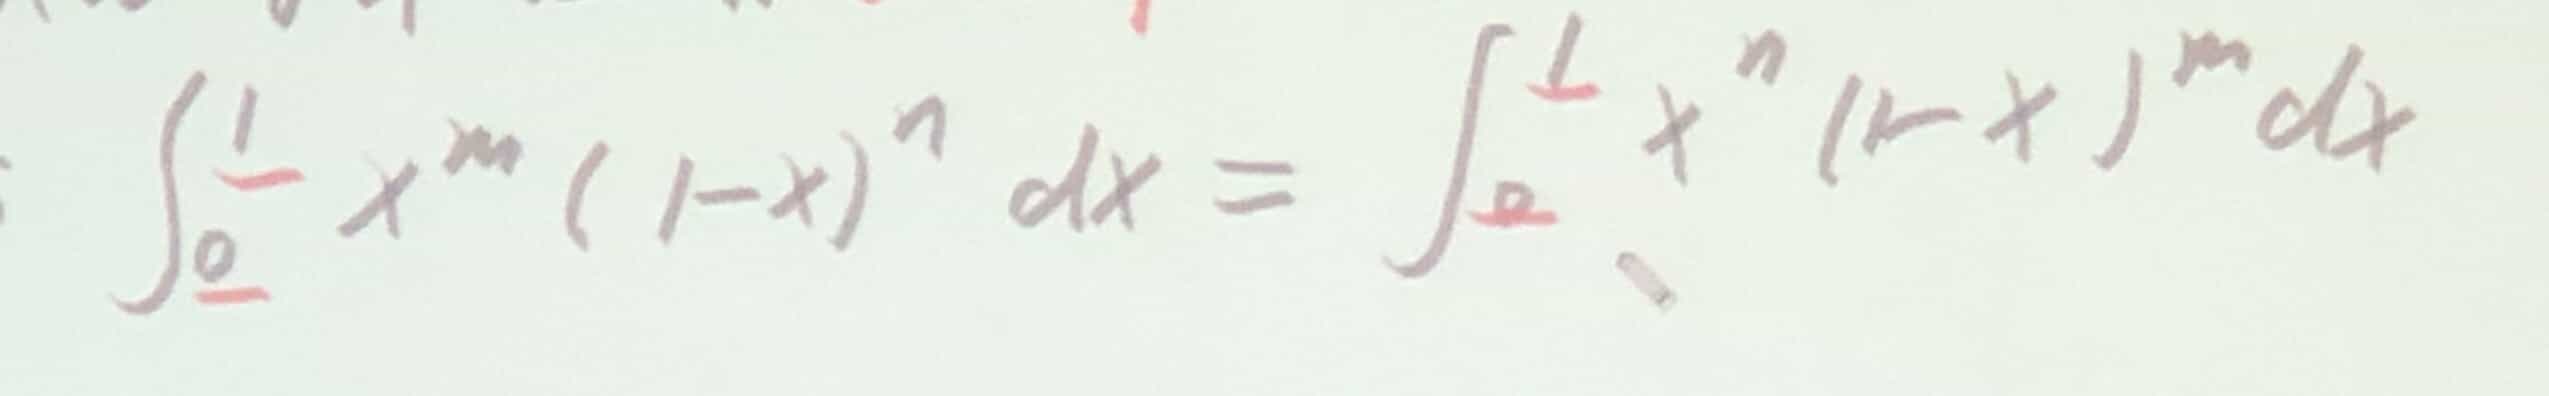 ∫₀¹ xᵐ (1-x)ⁿ dx = ∫₀¹ xⁿ (1-x)ᵐ dx